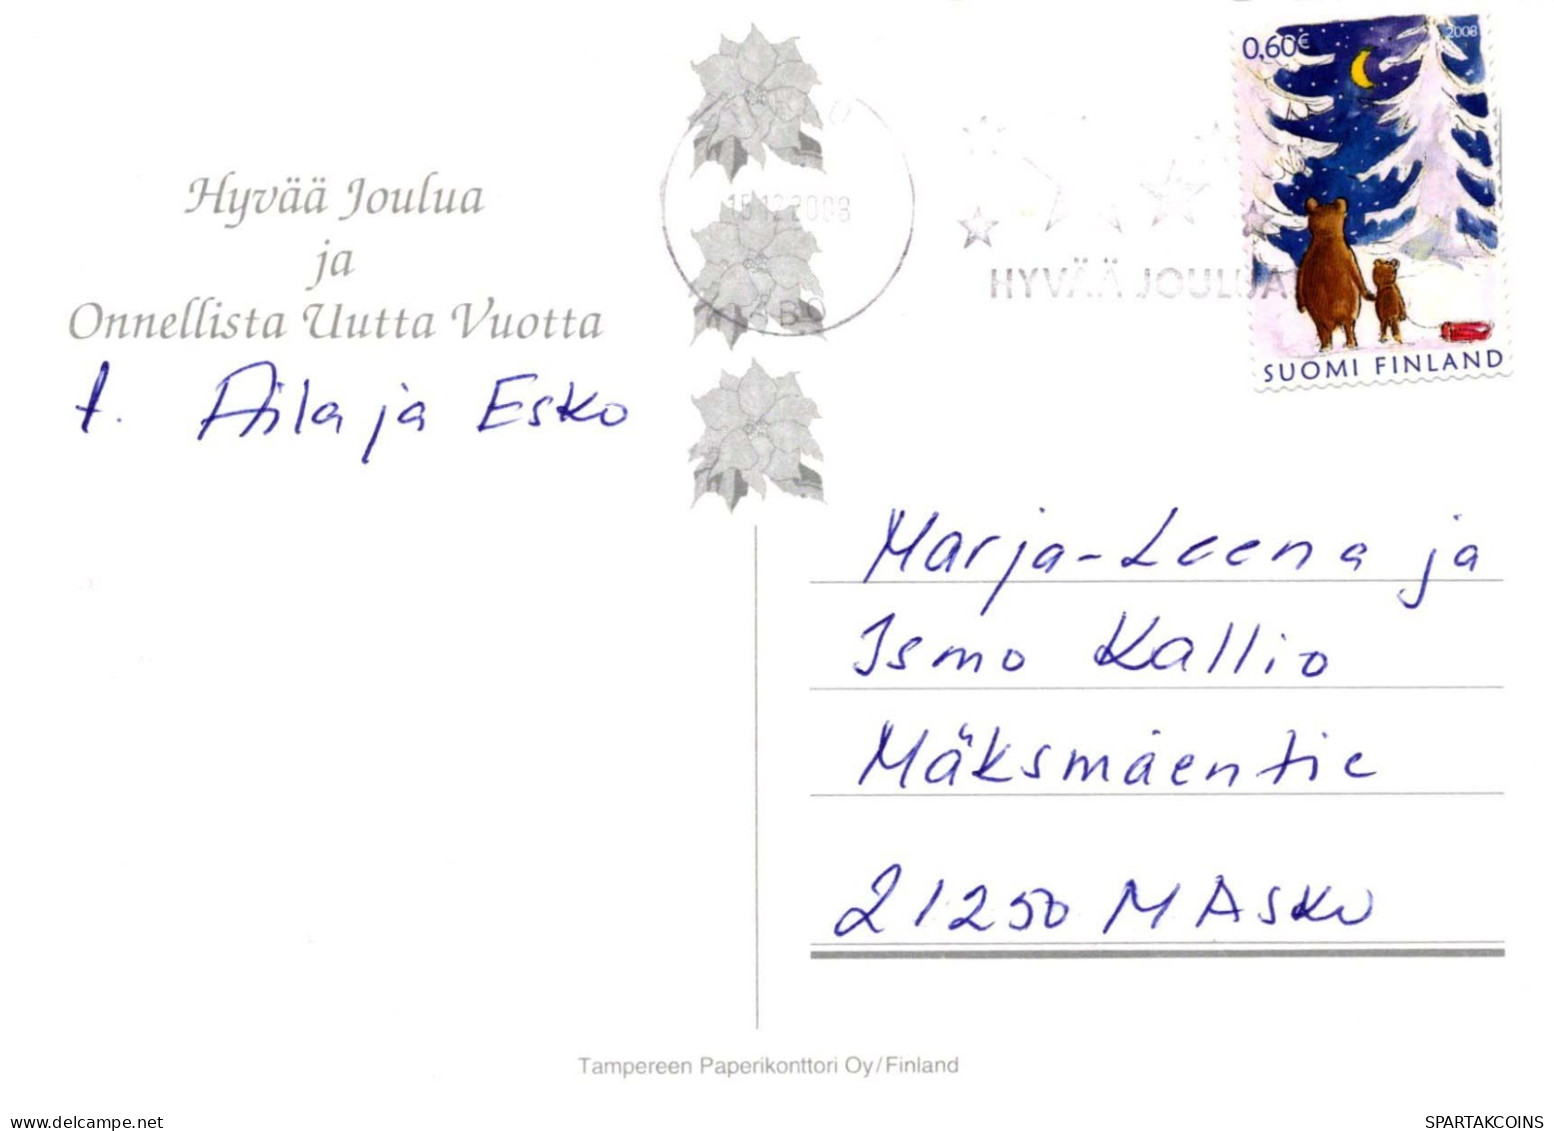 Hyvää Joulua
ja
Onnellista Uutta Vuotta
t. Aila ja Esko
2008
HYVÄÄ JOULUA
0,60€
2008
SUOMI FINLAND
Marja-Leena ja
Ismo Kallio
Mäksmäentie
21250 MAsku
Tampereen Paperikonttori Oy/Finland
delcampe.net
SPARTAKCOINS